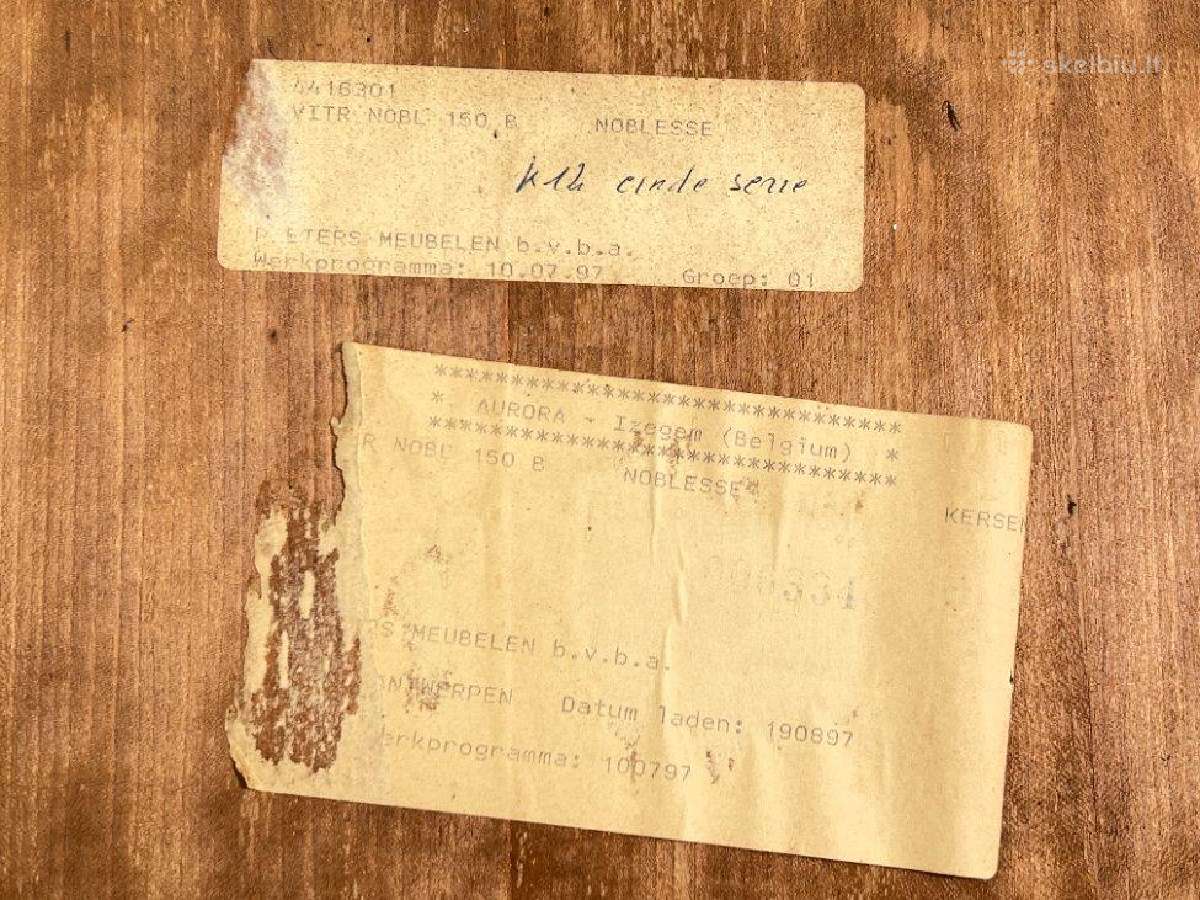 skelbiu.lt
4416301
VITR NOBL 150 B NOBLESSE
einde serie
PEETERS MEUBELEN b.v.b.a.
Werkprogramma: 10.07.97 Groep: 01
*******************************
* AURORA - Izegem (Belgium) *
*******************************
R NOBL 150 B NOBLESSE
KERSEN
4
RS MEUBELEN b.v.b.a.
ANTWERPEN Datum laden: 190897
erkprogramma: 100797